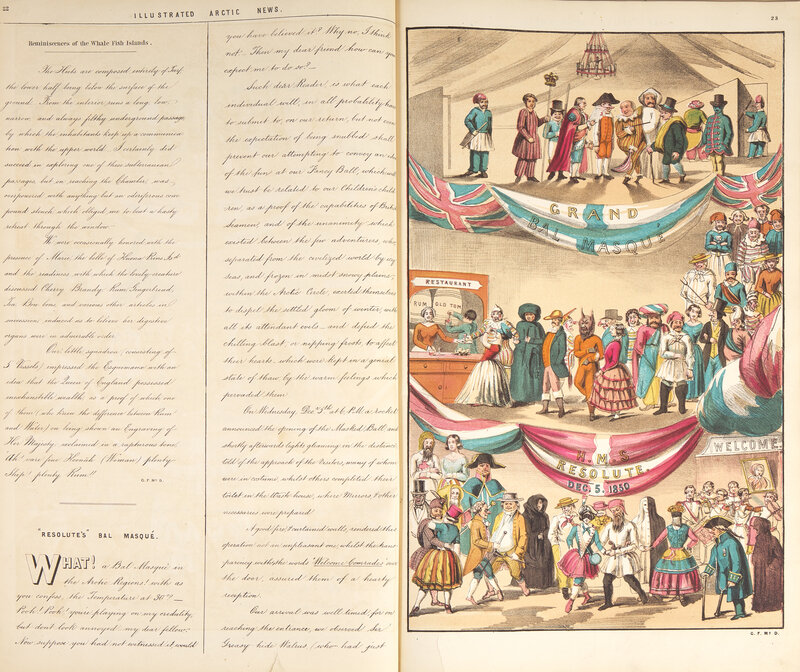 22
ILLUSTRATED ARCTIC NEWS.
Reminiscences of the Whale Fish Islands.
The Huts are composed entirely of Turf,
the lower half being below the surface of the
ground. From the interior runs a long, low,
narrow, and always filthy underground passage,
by which the inhabitants keep up a communica-
tion with the upper world. I certainly did
succeed in exploring one of these subterranean
passages, but on reaching the Chamber was
empowered with anything but an odoriferous com-
pound stench which obliged me to beat a hasty
retreat through the window.
We were occasionally honored with the
presence of Marie, the belle of
and the readiness with which the lovely creature
discussed Cherry Brandy, Rum, Gingerbread,
Gin, Bon bons, and various other articles in
succession, induced us to believe her digestive
organs were in admirable order.
Our little squadron, consisting of
5 Vessels, impressed the Esquimaux with an
idea that the Queen of England possessed
inexhaustible wealth; as a proof of which one
of them (who knew the difference between Rum
and Water) on being shown an Engraving of
Her Majesty exclaimed in a rapturous tone,
Ah! vare fine Hunah (Woman) plenty
Ship! plenty Rum!!
G. F. Mc D.
"RESOLUTE'S" BAL MASQUÉ.
WHAT! a Bal Masqué in
the Arctic Regions! with as
you confess, the Temperature at 30°?—
Pooh! Pooh! you're playing on my credulity,
but don't look annoyed my dear fellow.
Now suppose you had not witnessed it, would
you have believed it? Why no, I think
not. Then my dear friend how can you
expect me to do so?—
Such dear Reader, is what each
individual will, in all probability have
to submit to on our return, but not even
the expectation of being snubbed shall
prevent our attempting to convey an idea
of the fun at our Fancy Ball, which
we trust be related to our Children's child
ren, as a proof of the capabilities of British
Seamen, and of the unanimity which
existed between the few adventurers who,
separated from the civilized world by icy
seas, and frozen in midst snowy plains,
within the Arctic Circle, exerted themselves
to dispel the settled gloom of winter, with
all its attendant evils, and defied the
chilling blast or nipping frosts to affect
their hearts, which were kept in a genial
state of thaw by the warm feelings which
pervaded them.
On Wednesday, Decr 5th at 6 P.M. a rocket
announced the opening of the Masked Ball, and
shortly afterwards lights gleaming in the distance,
told of the approach of the Tenders, many of whom
were in costume, whilst others completed their
toilet in the Wash house, where Mirrors & other
necessaries were prepared.
A good fire & curtained walls, rendered this
operation not an unpleasant one, whilst the trans-
parency with the words "Welcome Comrades" over
the door, assured them of a hearty
reception.
Our arrival was well timed, for on
reaching the entrance, we observed Sir
Greasy hide Walrus, (who had just
23
GRAND
BAL MASQUÉ
RESTAURANT
RUM
OLD TOM
H.M.S.
RESOLUTE.
DEC. 5. 1850
WELCOME
G. F. Mc D.